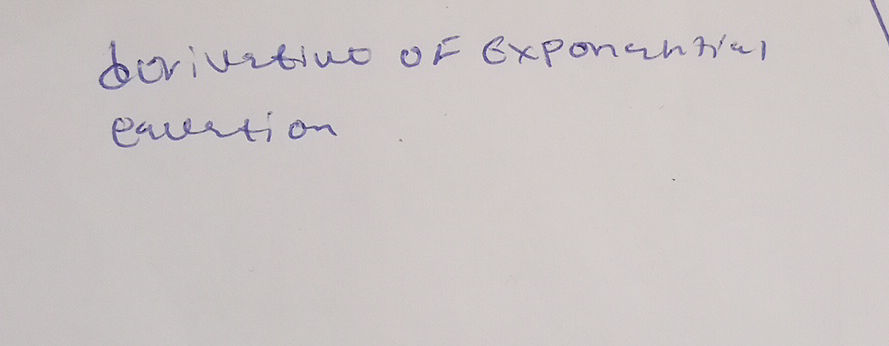 derivative of Exponential
equation